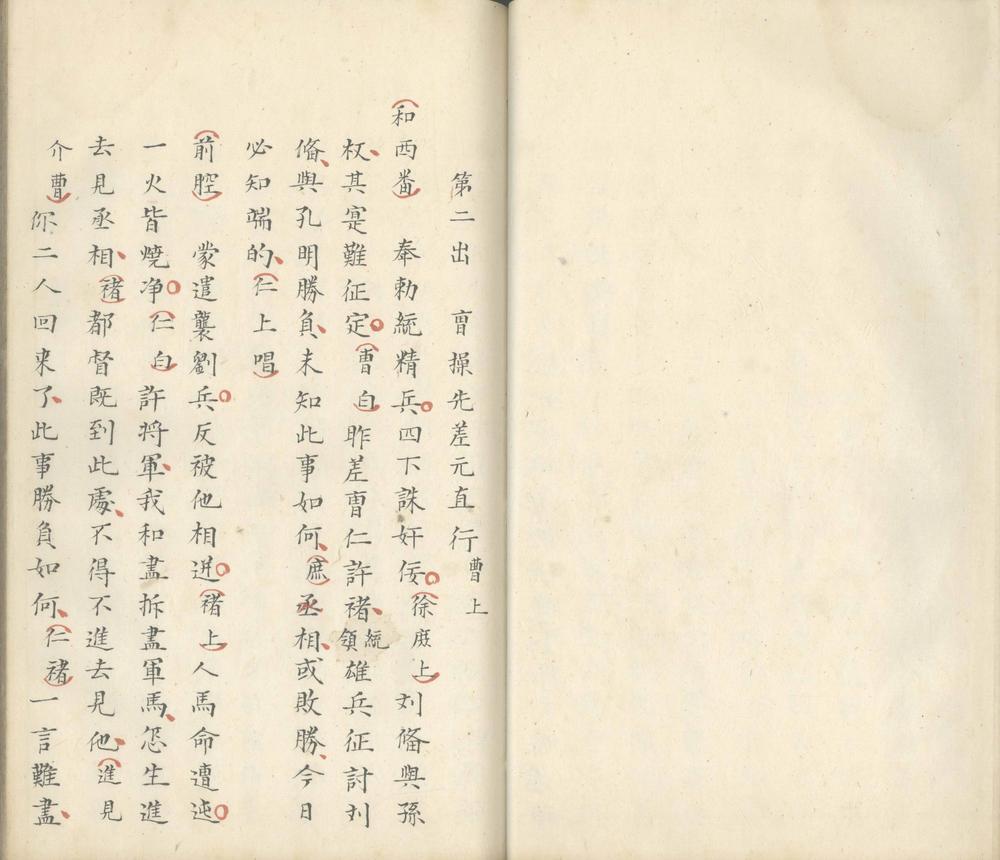 第二出　曹操先差元直行曹上
和西番　奉勅統精兵四下誅奸佞徐庶上刘俻與孫
权其寔難征定曹白昨差曹仁許褚統領雄兵征討刘
俻與孔明勝負未知此事如何庶丞相或敗勝今日
必知端的仁上唱
前腔　蒙遣襲劉兵反被他相迸褚上人馬命遭迍
一火皆燒净仁白許将軍我和盡拆盡軍馬怎生進
去見丞相褚都督既到此處不得不進去見他進見
介曹你二人回来了此事勝負如何仁褚一言難盡